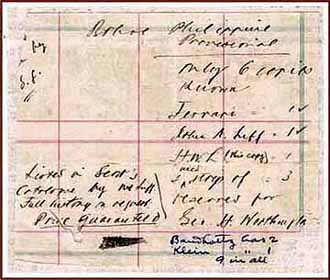 Philippine
Provisional
only 6 copies
known
Ferrari = 1
John N. Luff = 1
H W L (this copy) = 1
strip of = 3
reserved for
Geo. H. Worthington
Listed in Scott's
Catalogue by Mr Luff
Full history on request
Price guaranteed
2
Klein 1
9 in all